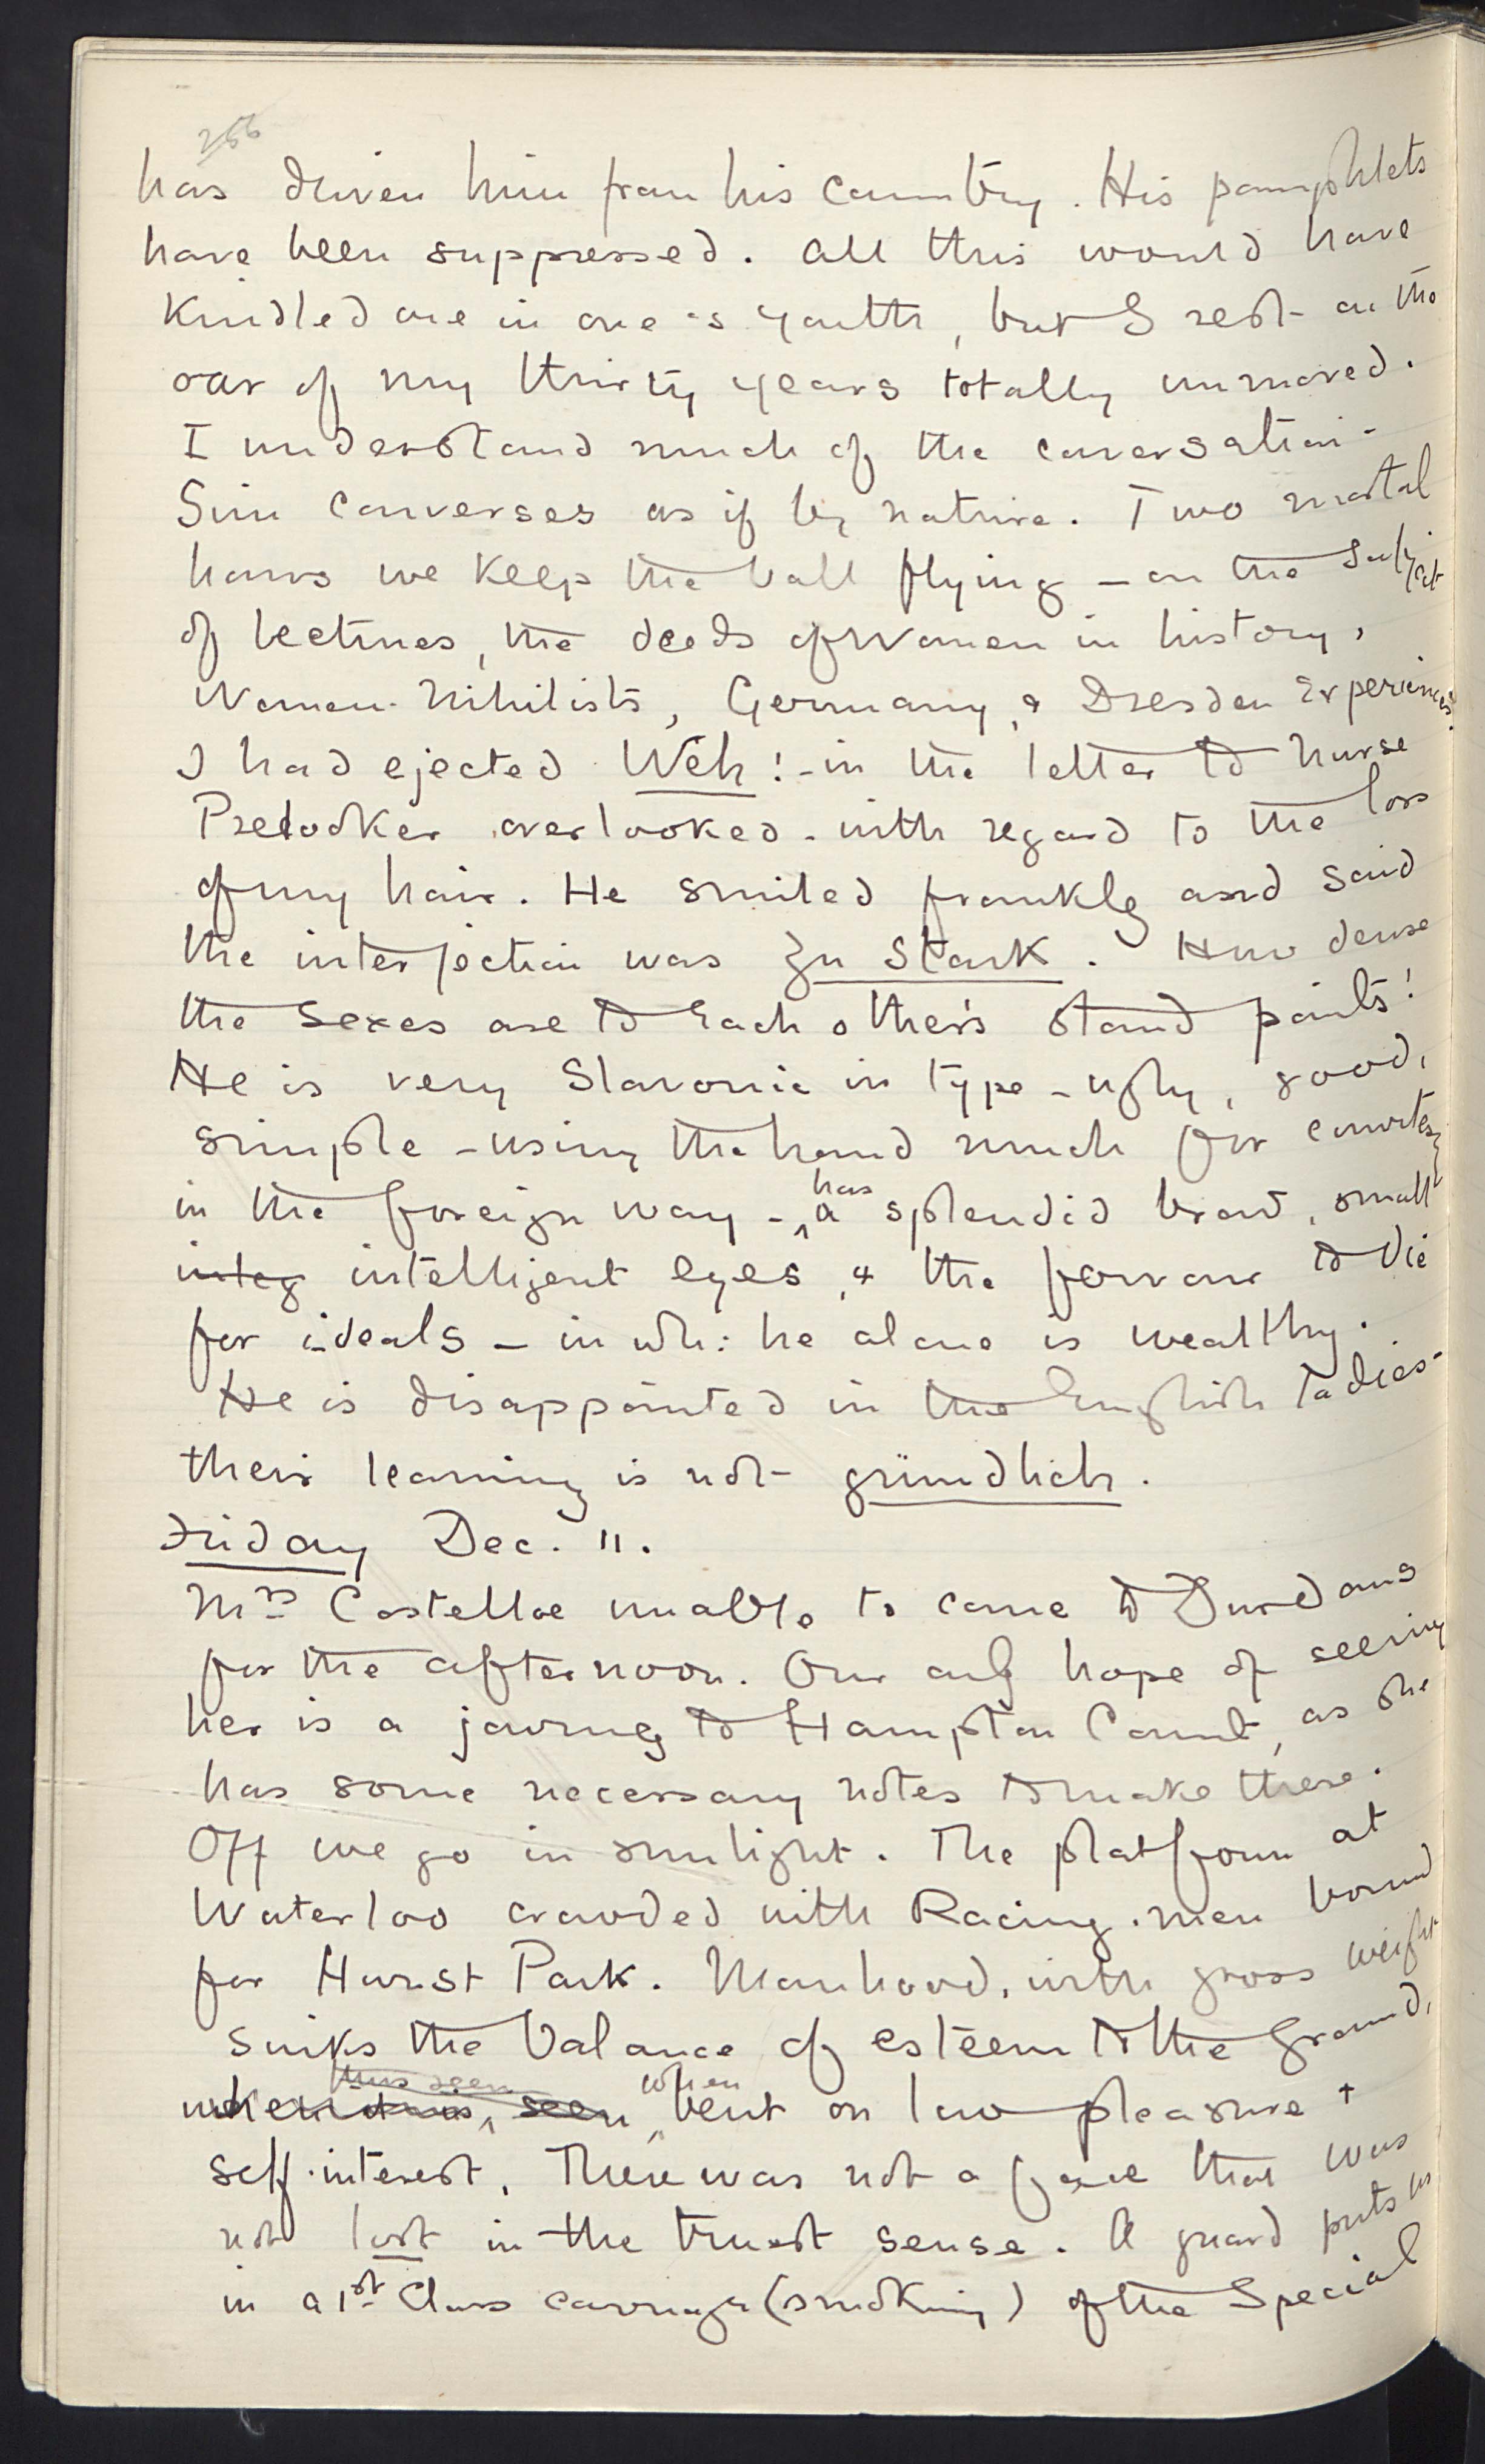 256
has driven him from his country. His pamphlets
have been suppressed. All this would have
kindled one in one's youth, but I rest on the
oar of my thirty years totally unmoved.
I understand much of the conversation -
Sim converses as if by nature. Two mortal
hours we keep the ball flying - on the subject
of lectures, the deeds of women in history,
Women-Nihilists, Germany, & Dresden Experiences.
I had ejected Weh! - in the letter to Nurse
Prelooker overlooked - with regard to the loss
of my hair. He smiled frankly and said
the interjection was zu stark. How dense
the sexes are to each other's stand points!
He is very Slavonic in type - ugly, good,
simple - using the hand much for courtesy
in the foreign way - has
a splendid brow, small
integ intelligent eyes, & the forvour to die
for ideals - in wh: he alone is wealthy.
He is disappointed in the English ladies -
their learning is not gründlich.
Friday Dec. 11.
Mrs Costelloe unable to come to Durdans
for the afternoon. Our only hope of seeing
her is a journey to Hampton Court, as she
has some necessary notes to make there.
Off we go in sunlight. The platform at
Waterloo crowded with Racing-men bound
for Hurst Park. Manhood, with gross weight
sinks the balance of esteem to the ground,
thus seen when
when seen bent on low pleasure +
self-interest. There was not a face that was
not lost in the truest sense. A guard puts us
in a 1st Class carriage (smoking) of the Special